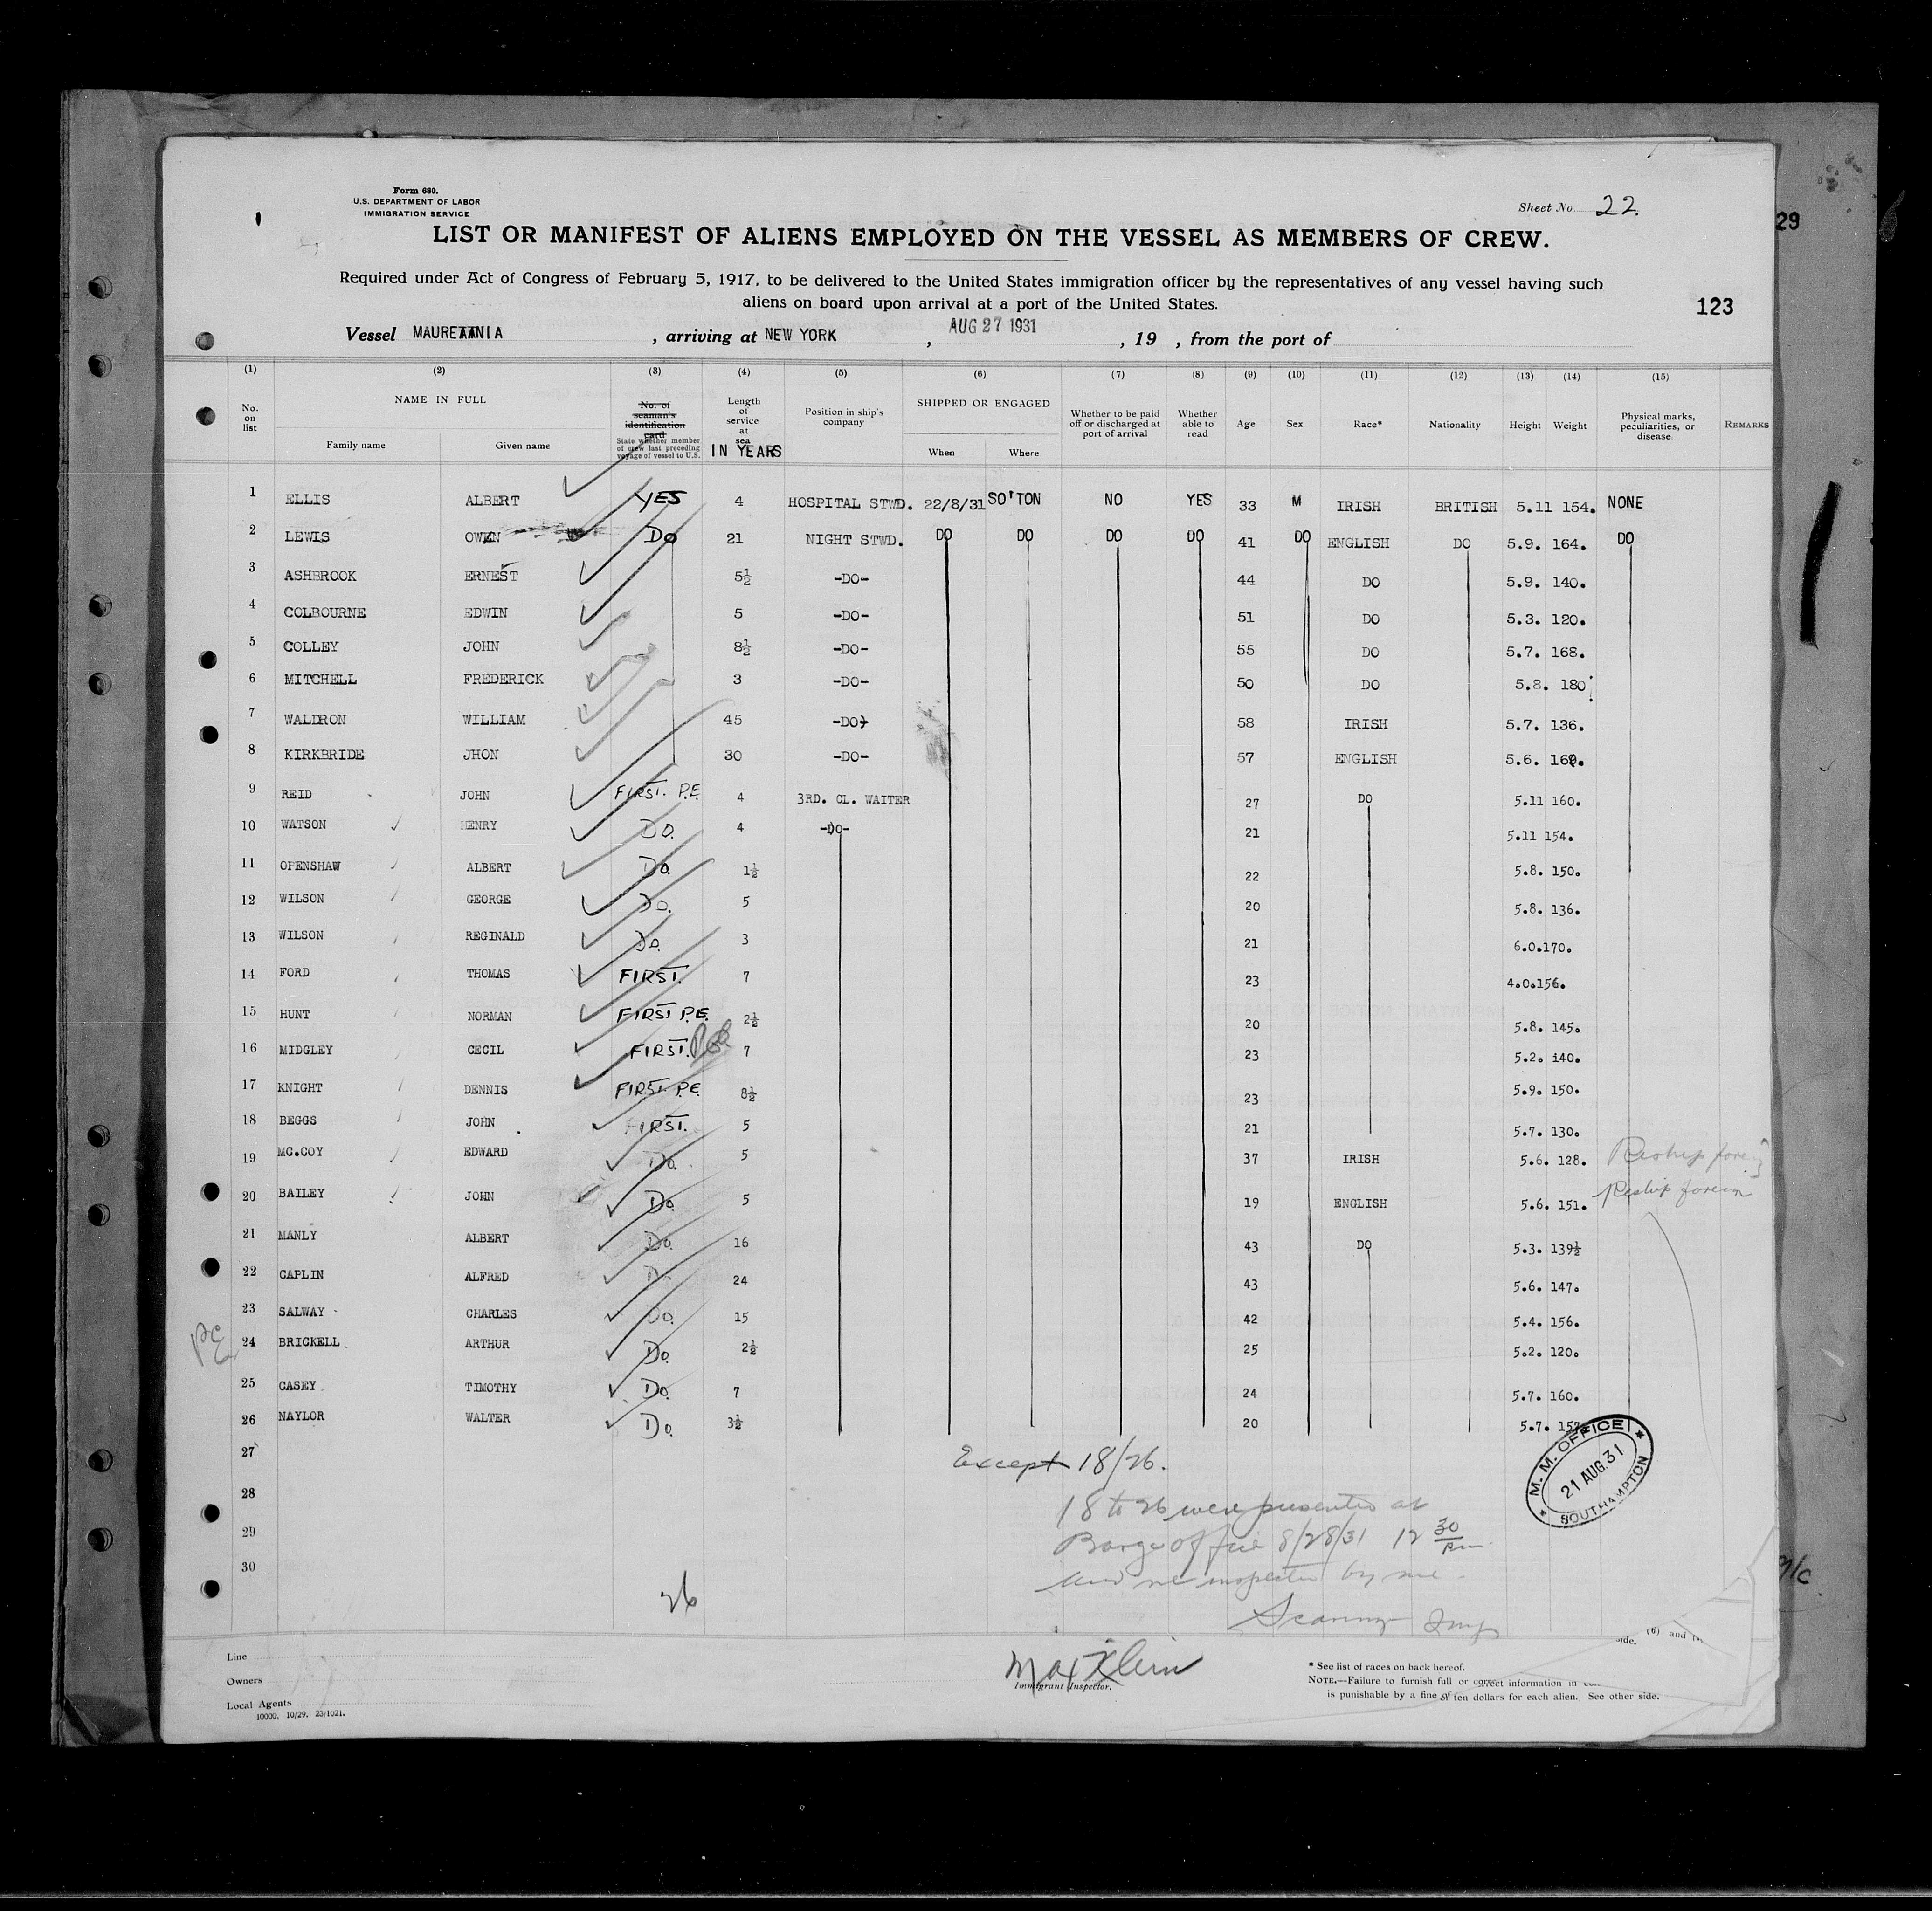 Form 680.
U.S. DEPARTMENT OF LABOR
IMMIGRATION SERVICE
Sheet No. 22.
29
LIST OR MANIFEST OF ALIENS EMPLOYED ON THE VESSEL AS MEMBERS OF CREW.
Required under Act of Congress of February 5, 1917, to be delivered to the United States immigration officer by the representatives of any vessel having such
aliens on board upon arrival at a port of the United States.
123
Vessel MAURETANIA , arriving at NEW YORK , AUG 27 1931 , 19 , from the port of
(1) (2) (3) (4) (5) (6) (7) (8) (9) (10) (11) (12) (13) (14) (15)
No. on list
NAME IN FULL
Family name Given name
No. of seaman's identification card
State whether member of crew last preceding voyage of vessel to U.S.
Length of service at sea IN YEARS
Position in ship's company
SHIPPED OR ENGAGED
When Where
Whether to be paid off or discharged at port of arrival
Whether able to read
Age Sex Race* Nationality Height Weight
Physical marks, peculiarities, or disease.
REMARKS
1 ELLIS ALBERT YES 4 HOSPITAL STWD. 22/8/31 SO'TON NO YES 33 M IRISH BRITISH 5.11 154. NONE
2 LEWIS OWEN DO 21 NIGHT STWD. DO DO DO DO 41 DO ENGLISH DO 5.9. 164. DO
3 ASHBROOK ERNEST 5½ -DO- 44 DO 5.9. 140.
4 COLBOURNE EDWIN 5 -DO- 51 DO 5.3. 120.
5 COLLEY JOHN 8½ -DO- 55 DO 5.7. 168.
6 MITCHELL FREDERICK 3 -DO- 50 DO 5.8. 180
7 WALDRON WILLIAM 45 -DO- 58 IRISH 5.7. 136.
8 KIRKBRIDE JHON 30 -DO- 57 ENGLISH 5.6.
9 REID JOHN FIRST. P.E. 4 3RD. CL. WAITER 27 DO 5.11 160.
10 WATSON HENRY DO. 4 -DO- 21 5.11 154.
11 OPENSHAW ALBERT Do. 1½ 22 5.8. 150.
12 WILSON GEORGE Do. 5 20 5.8. 136.
13 WILSON REGINALD Do. 3 21 6.0.170.
14 FORD THOMAS FIRST. 7 23 4.0.156.
15 HUNT NORMAN FIRST P.E. 2½ 20 5.8. 145.
16 MIDGLEY CECIL FIRST. 7 23 5.2. 140.
17 KNIGHT DENNIS FIRST. P.E. 8½ 23 5.9. 150.
18 BEGGS JOHN FIRST. 5 21 5.7. 130.
19 MC.COY EDWARD Do. 5 37 IRISH 5.6. 128. Reship foreign
20 BAILEY JOHN Do. 5 19 ENGLISH 5.6. 151. Reship foreign
21 MANLY ALBERT Do. 16 43 DO 5.3. 139½
22 CAPLIN ALFRED Do. 24 43 5.6. 147.
23 SALWAY CHARLES Do. 15 42 5.4. 156.
PE
24 BRICKELL ARTHUR Do. 2½ 25 5.2. 120.
25 CASEY TIMOTHY Do. 7 24 5.7. 160.
26 NAYLOR WALTER Do. 3½ 20 5.7. 157
27
28
29
30
M. M. OFFICE
21 AUG.31
SOUTHAMPTON
Except 18/26.
18 to 26 were presented at
Barge office 8/28/31 12 30 pm
and inspected by me.
26
Max Klein
Immigrant Inspector.
Line
Owners
Local Agents
10000. 10/29. 23/1021.
side. (6) and
* See list of races on back hereof.
NOTE.—Failure to furnish full or correct information in
is punishable by a fine of ten dollars for each alien. See other side.